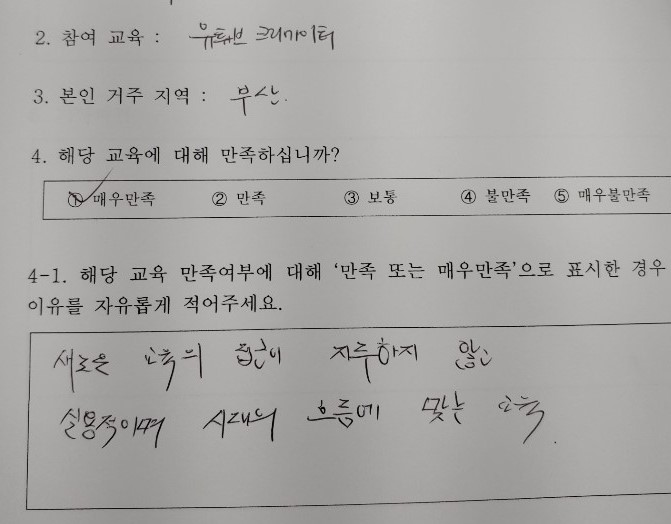 2. 참여 교육 : 유튜브 크리에이터
3. 본인 거주 지역 : 부산.
4. 해당 교육에 대해 만족하십니까?
① 매우만족 ② 만족 ③ 보통 ④ 불만족 ⑤ 매우불만족
4-1. 해당 교육 만족여부에 대해 '만족 또는 매우만족'으로 표시한 경우
이유를 자유롭게 적어주세요.
새로운 교육의 접근이 지루하지 않고
실용적이며 시대의 흐름에 맞는 교육.